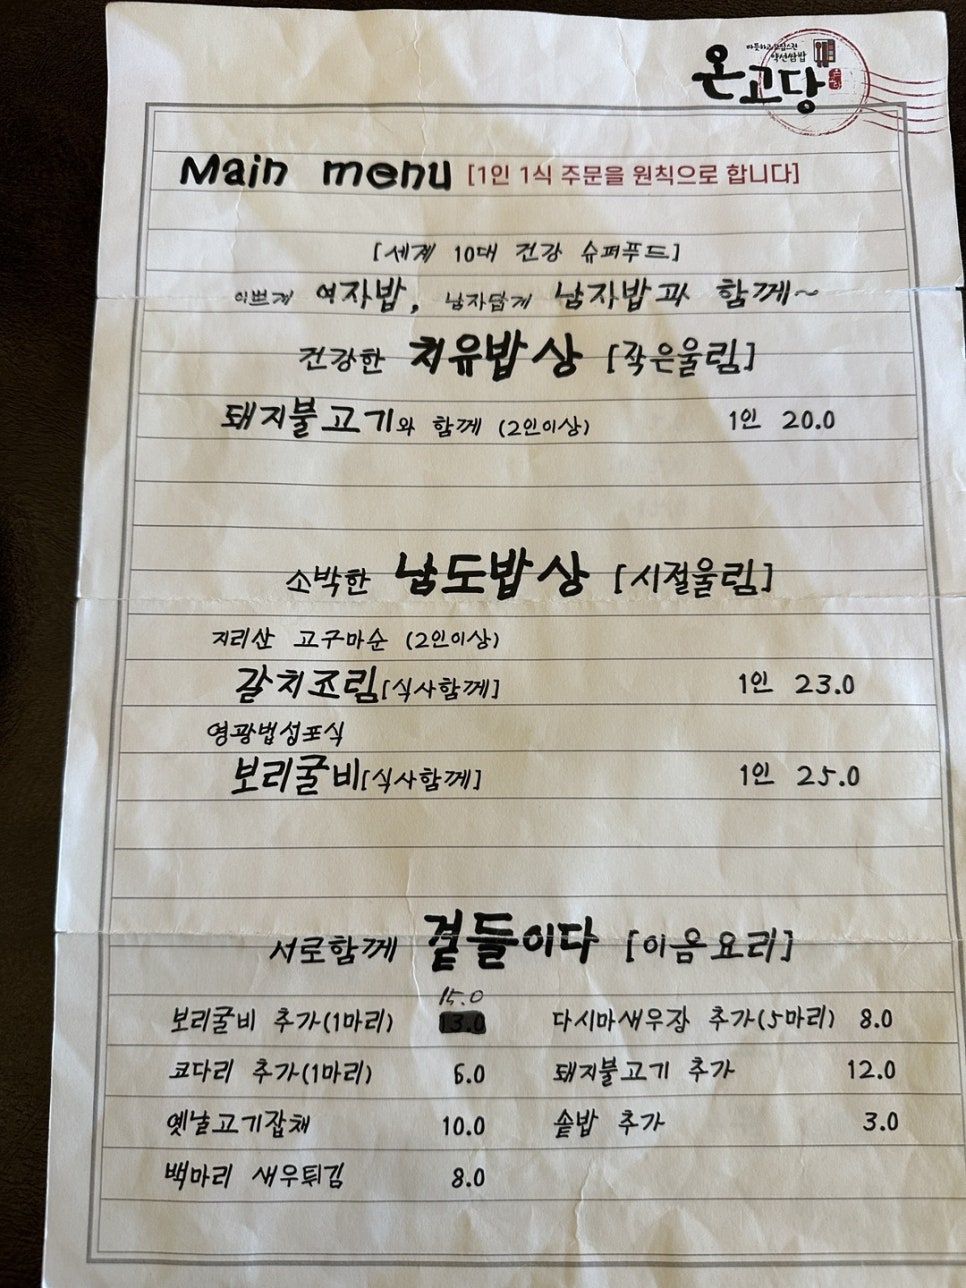 따뜻하고 맛있는 한 약선쌈밥
온고당
Main menu [1인 1식 주문을 원칙으로 합니다]
[세계 10대 건강 슈퍼푸드]
이쁘게 여자밥, 남자답게 남자밥과 함께~
건강한 치유밥상 [작은울림]
돼지불고기와 함께 (2인이상) 1인 20.0
소박한 남도밥상 [시절울림]
지리산 고구마순 (2인이상)
갈치조림[식사함께] 1인 23.0
영광법성포식
보리굴비[식사함께] 1인 25.0
서로함께 곁들이다 [이음요리]
15.0
보리굴비 추가(1마리) 13.0 다시마새우장 추가(5마리) 8.0
코다리 추가(1마리) 6.0 돼지불고기 추가 12.0
옛날고기잡채 10.0 솥밥 추가 3.0
백마리 새우튀김 8.0